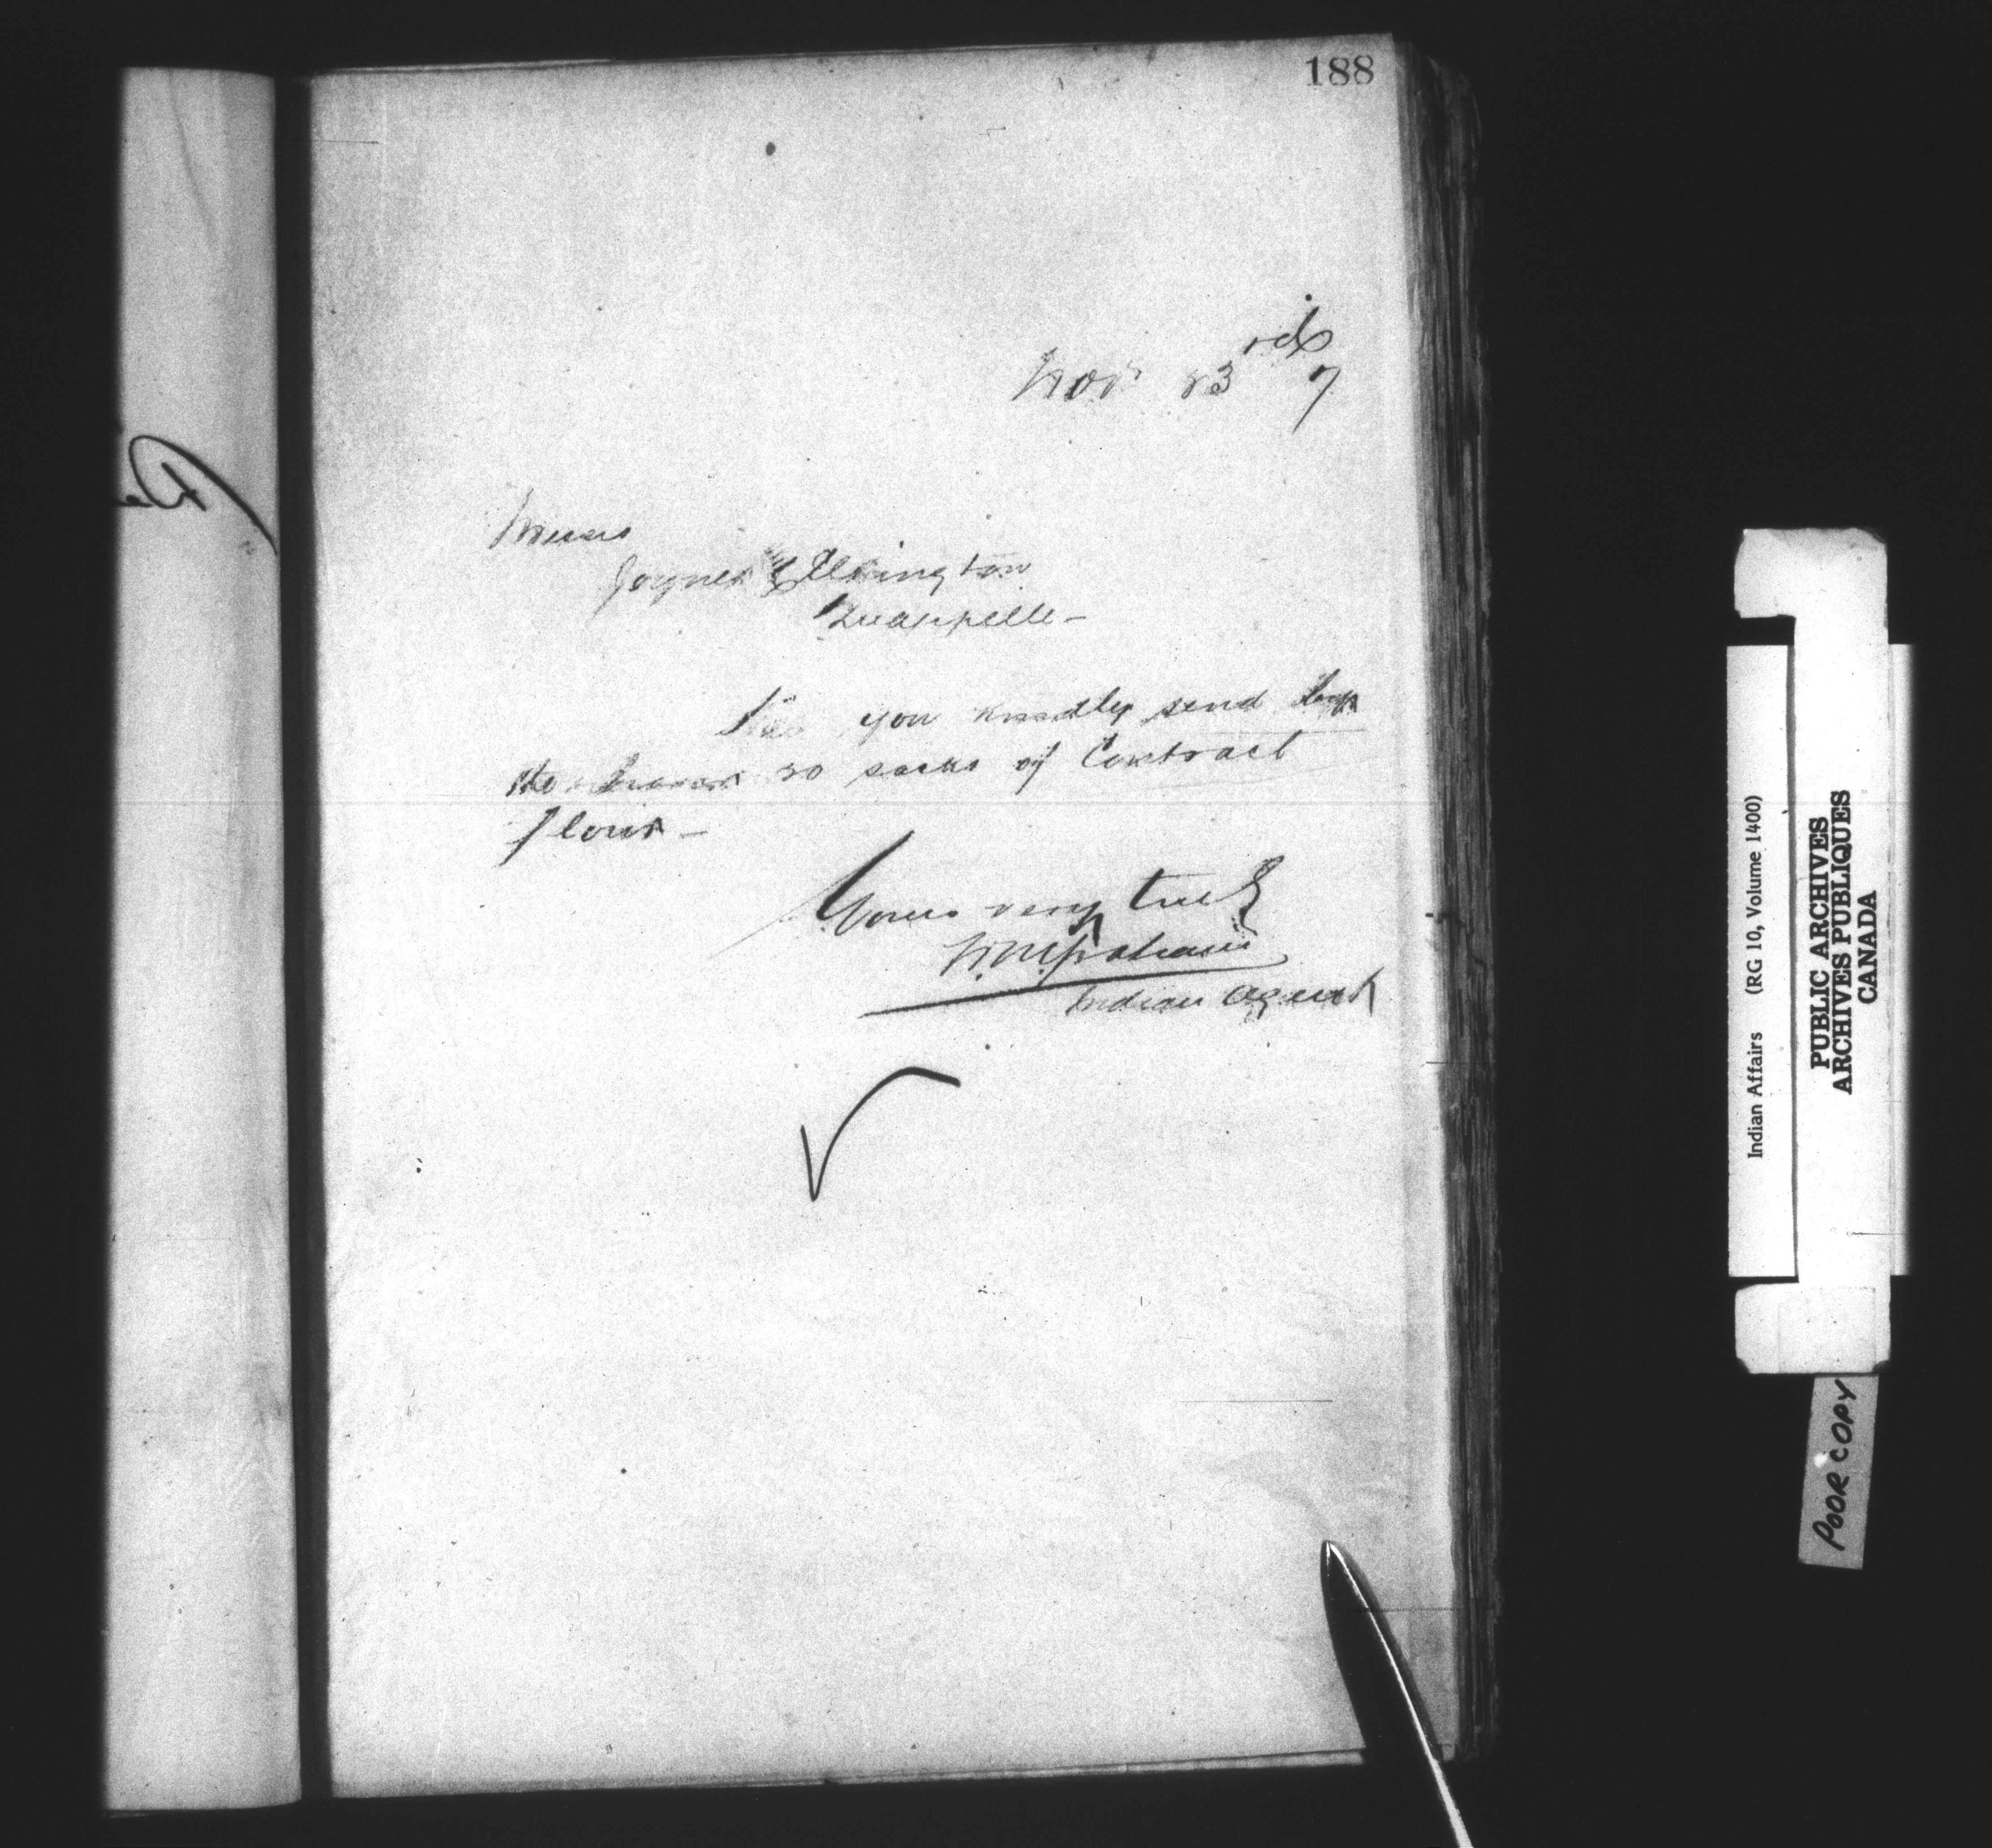 188
Nov 23rd 7
Messrs
Joyner & Elkington
Quappelle -
you kindly send by
the 30 sacks of Contract
flour -
Yours very truly
Indian Agent
Indian Affairs (RG 10, Volume 1400)
PUBLIC ARCHIVES
ARCHIVES PUBLIQUES
CANADA
POOR COPY